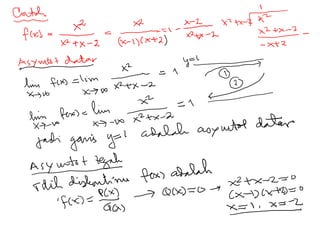 Contoh
f(x) = x²/(x²+x-2) = x²/((x-1)(x+2)) = 1 - (x-2)/(x²+x-2)
x²+x-2 √ x²
1
x²+x-2
-x+2
Asymtot datar
lim x→∞ f(x) = lim x→∞ x²/(x²+x-2) = 1
y=1
①
②
lim x→-∞ f(x) = lim x→-∞ x²/(x²+x-2) = 1
Jadi garis y=1 adalah asymtot datar
Asymtot tegak
f(x) adalah
f(x) = P(x)/Q(x) → Q(x)=0 → x²+x-2=0
(x-1)(x+2)=0
x=1, x=-2